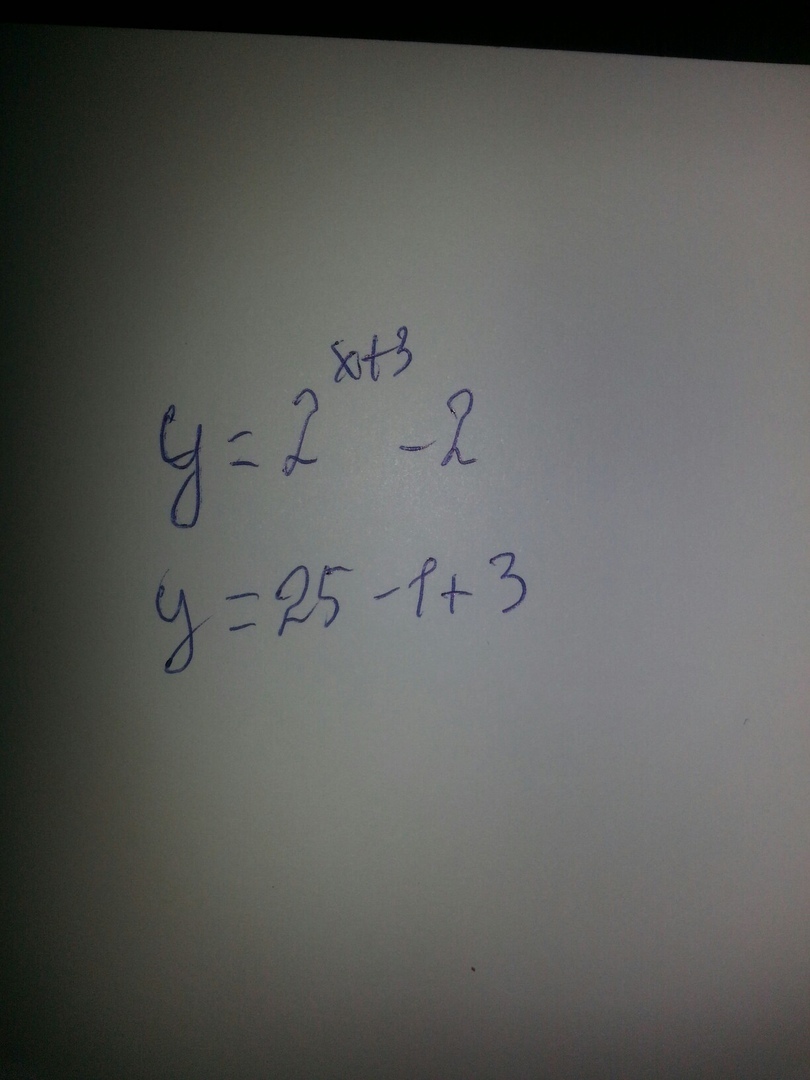 y = 2^{x+3} - 2
y = 25 - 1 + 3